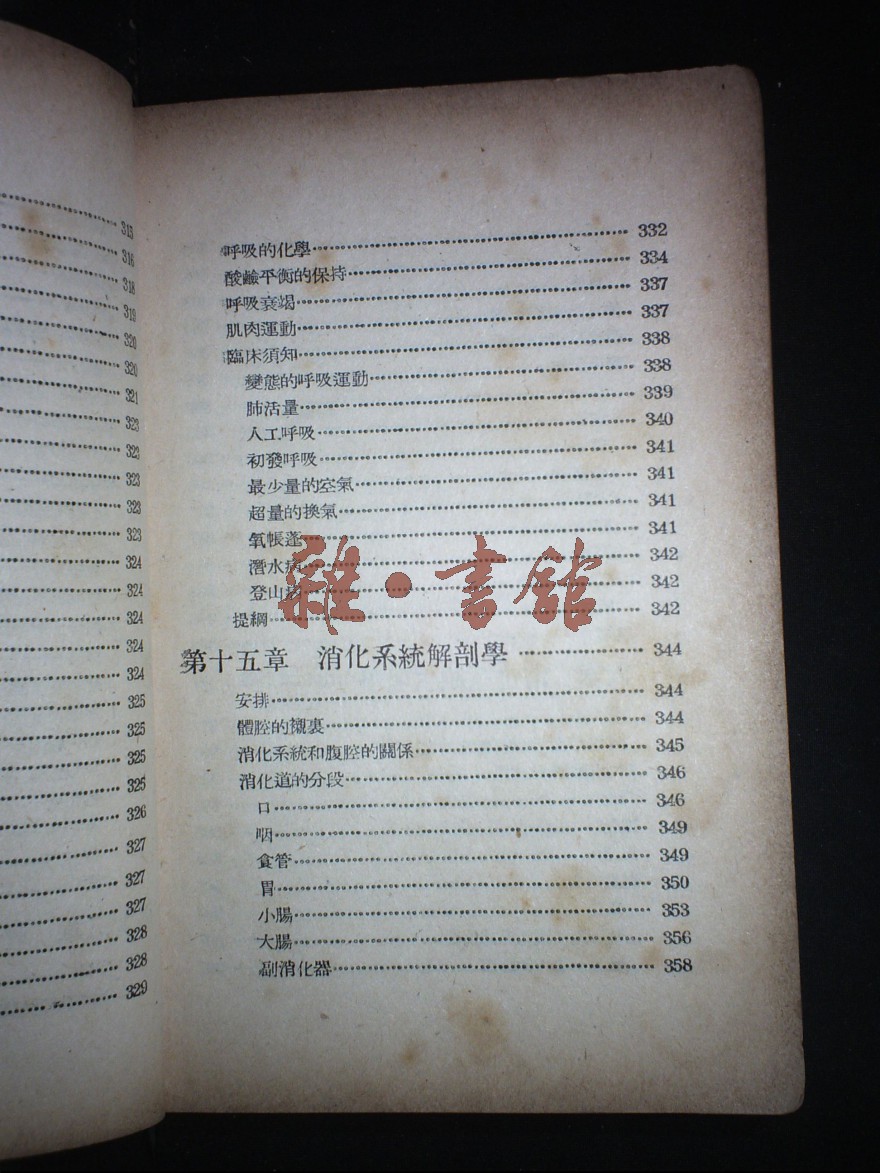 315
316
318
319
320
320
321
323
322
323
323
323
324
324
324
324
324
325
325
325
325
326
327
327
327
328
328
329
呼吸的化學 332
酸鹼平衡的保持 334
呼吸衰竭 337
肌肉運動 337
臨床須知 338
變態的呼吸運動 338
肺活量 339
人工呼吸 340
初發呼吸 341
最少量的空氣 341
超量的換氣 341
氧帳蓬 341
潛水病 342
登山病 342
提綱 342
雜·書館
第十五章 消化系統解剖學 344
安排 344
體腔的襯裏 344
消化系統和腹腔的關係 345
消化道的分段 346
口 346
咽 349
食管 349
胃 350
小腸 353
大腸 356
副消化器 358